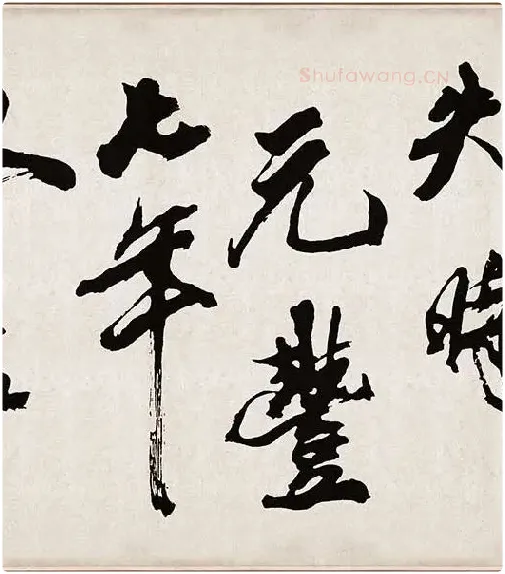 Shufawang.CN
失時
元豐
七年